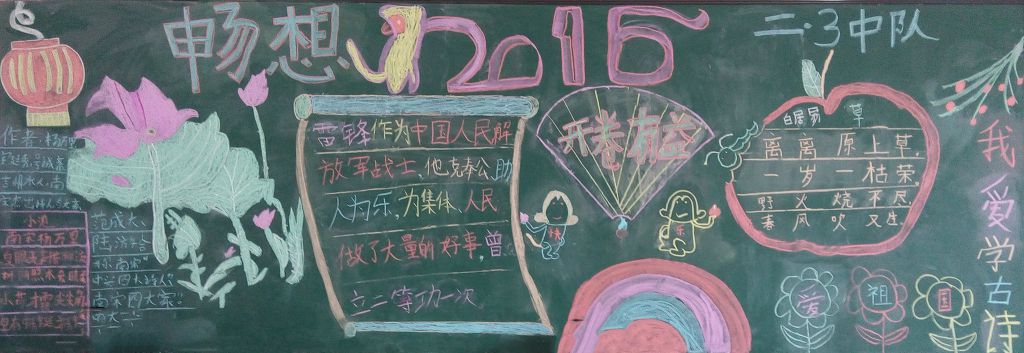 畅想 2016
二·3中队
作者:杨万
小池
范成大、
陆
"南宋
南宋四大家"
雷锋作为中国人民解
放军战士,他克奉公,助
人为乐,为集体、人民
做了大量的好事,曾
立二等功一次。
开卷有益
快
乐
白居易 草
离离原上草,
一岁一枯荣,
野火烧不尽
春风吹又生
爱祖国
我爱学古诗